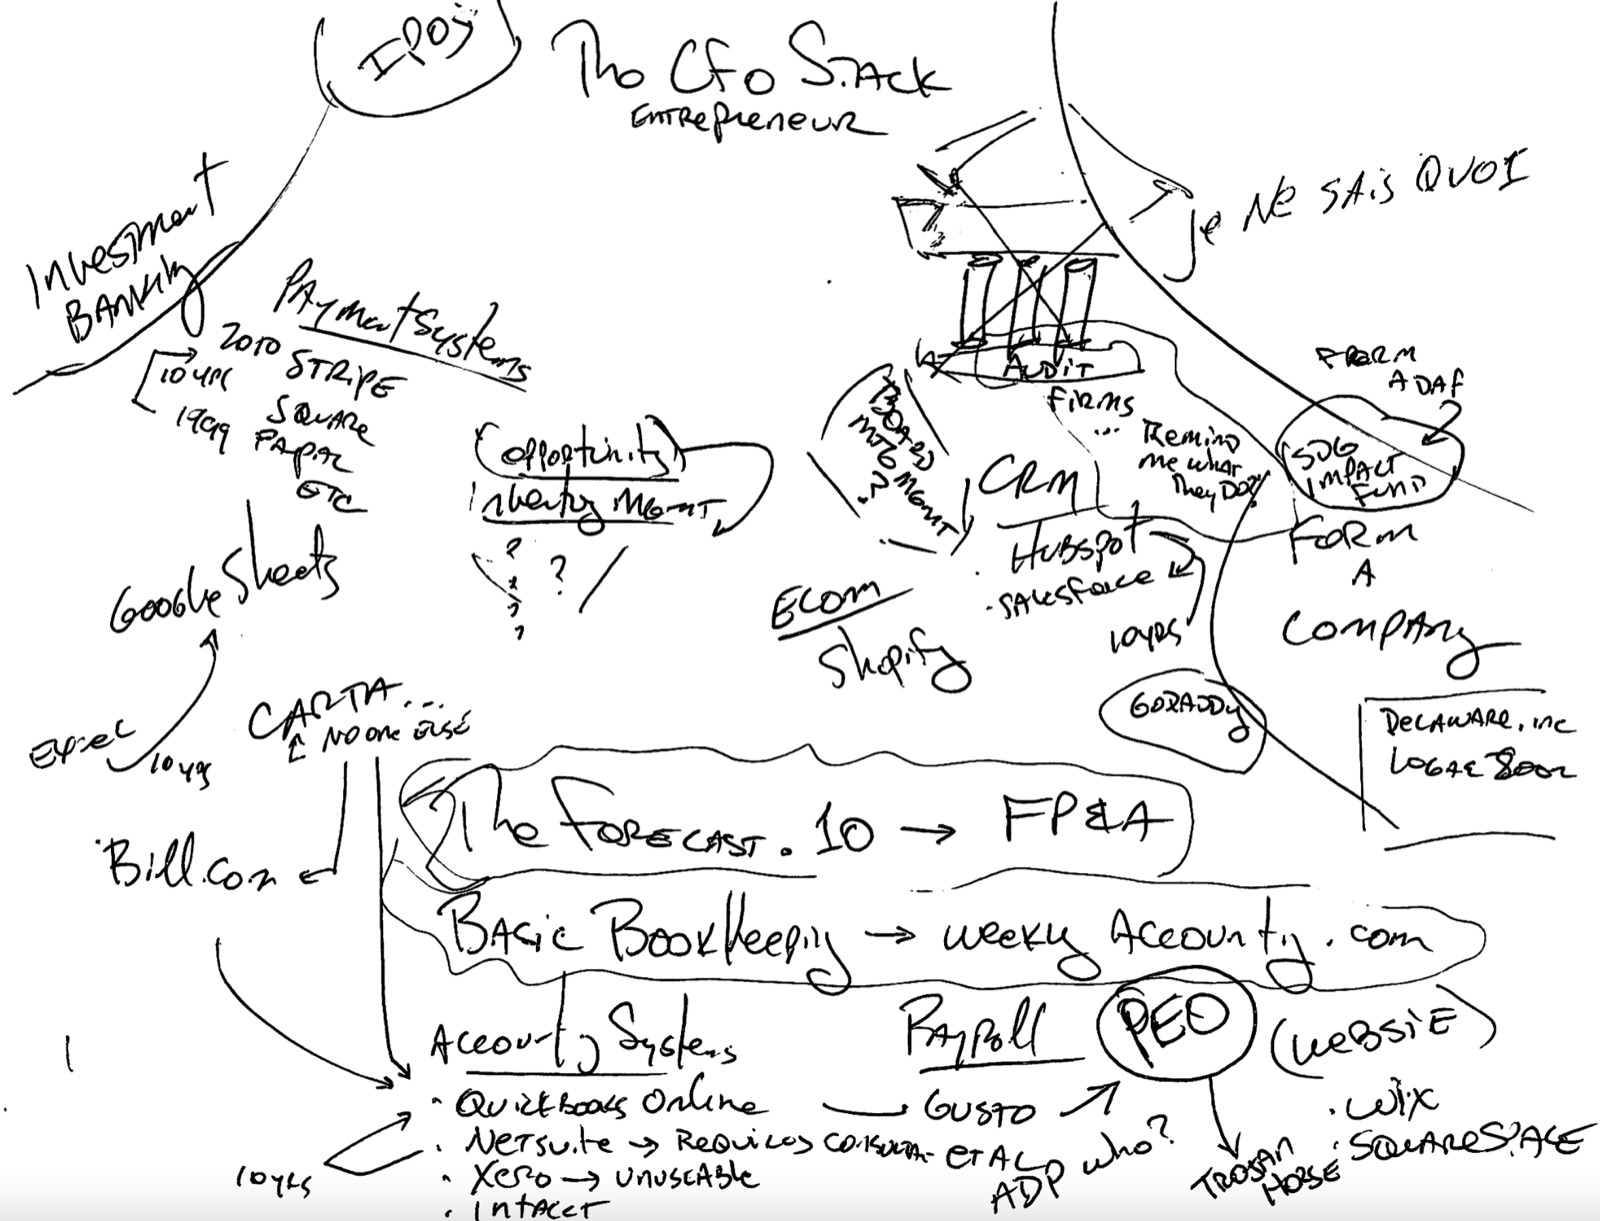 IPOs
The CFO Stack
Entrepreneur
Je NE SAIS QUOI
Investment
BANKING
Payment Systems
2010 STRIPE
10 yrs
SQUARE
1999 PAYPAL
ETC
(opportunity)
Inventory MGMT
?
? ?
?
?
AUDIT
FIRMS
...
Remind
me what
They DO?
BOARD
MTG MGMT
?
FORM
A DAF
SDG
IMPACT
FUND
CRM
Hubspot
· SALESforce
10 yrs
FORM
A
COMPANY
DELAWARE.inc
Google Sheets
Excel
10 yrs
ECOM
Shopify
GODADDY
CARTA...
NO ONE ELSE
Bill.com
The FORECAST.10 → FP&A
BASIC BOOKKeeping → weekly Accounting.com
Accounting Systems
· QUICKBOOKS Online
· NETSUITE → REQUIRES CONSULTA-
· XERO → UNUSEABLE
· INTACCT
10 yrs
PAYROLL
GUSTO
ET AL
ADP who?
PEO
TROJAN
HORSE
(WEBSIE)
· WIX
· SQUARESPACE